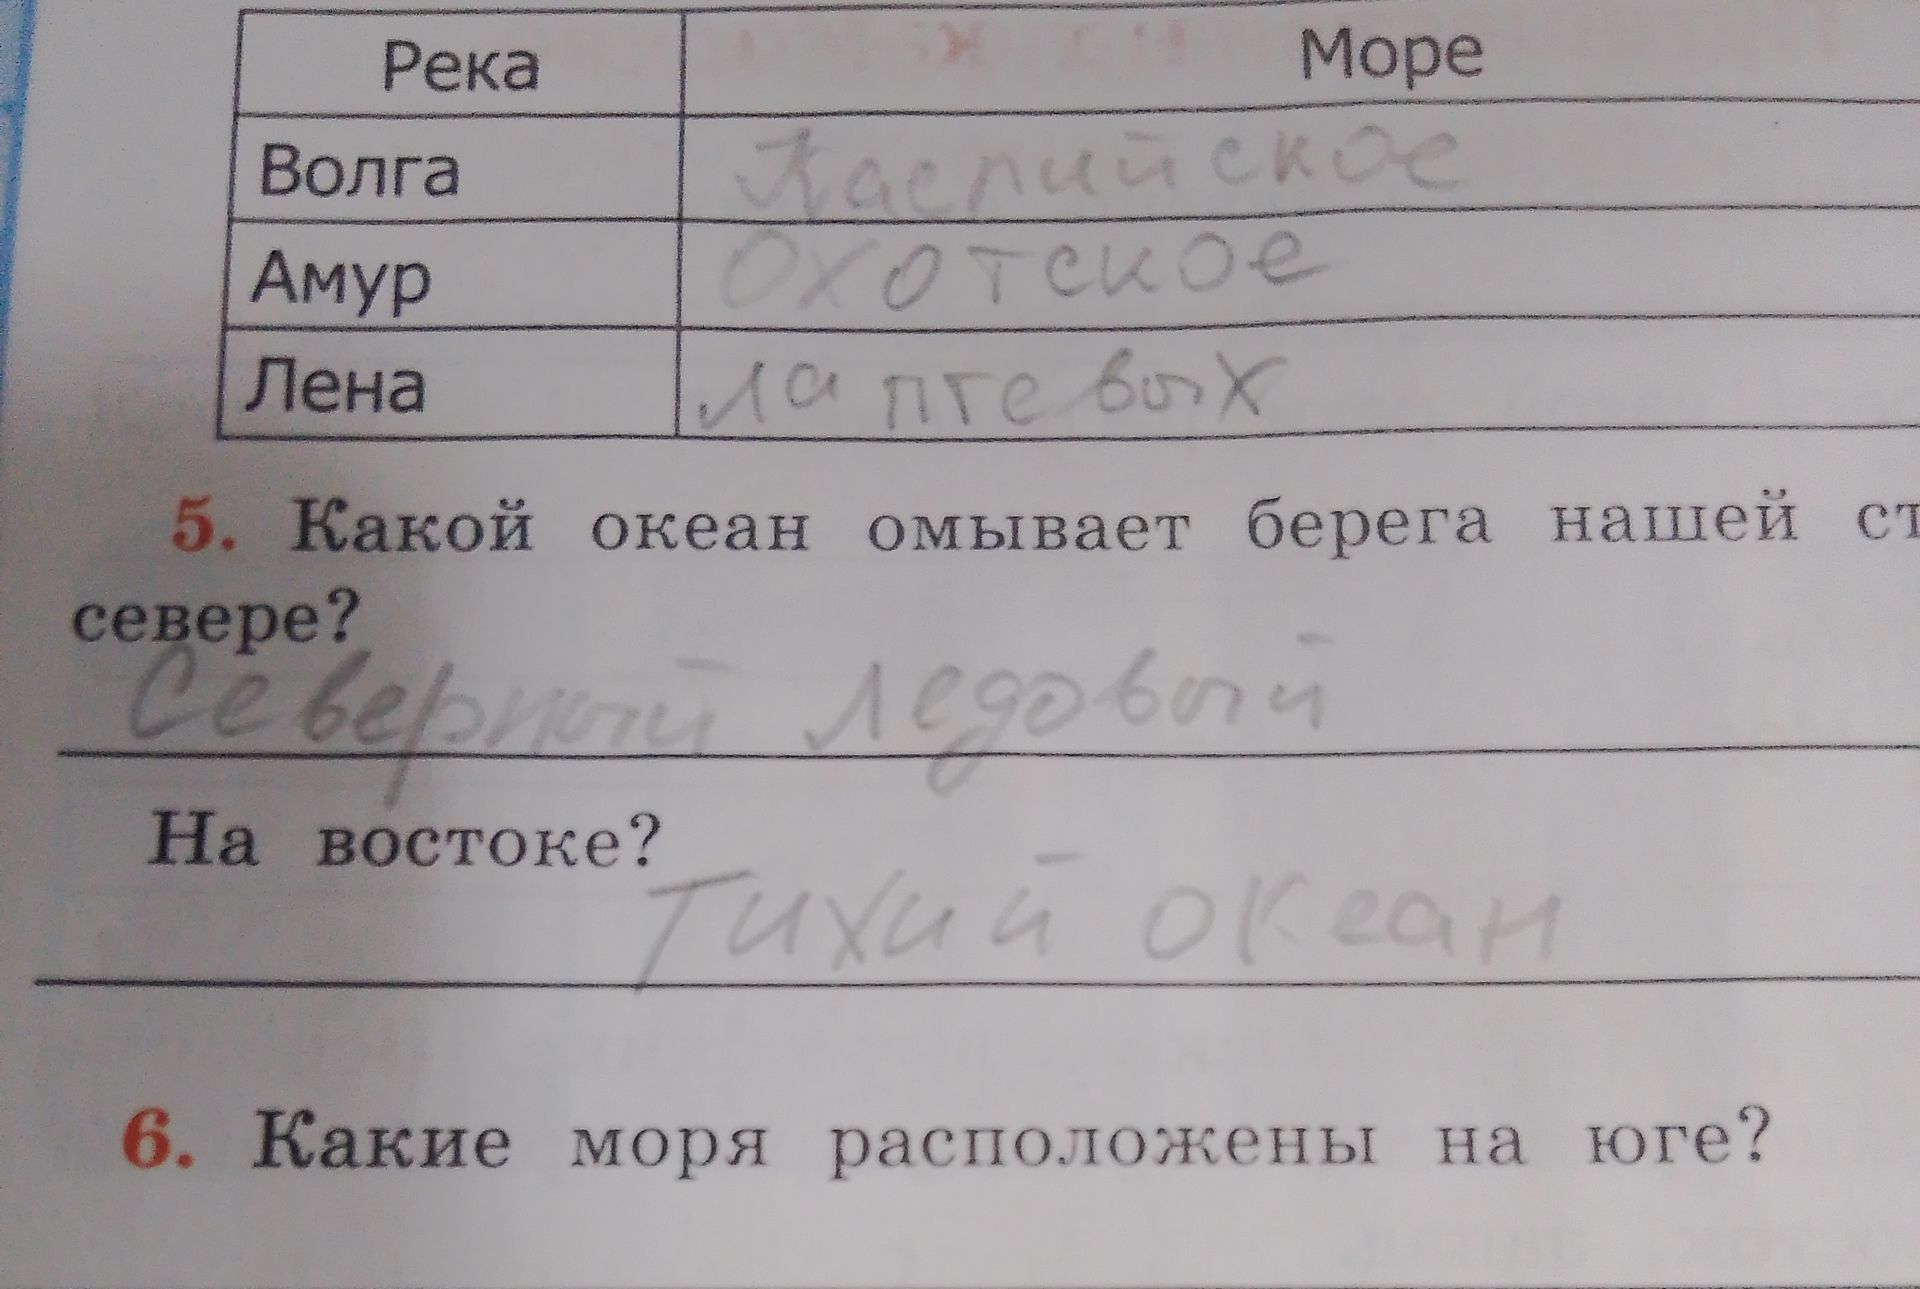 Река Море
Волга Каспийское
Амур Охотское
Лена лаптевых
5. Какой океан омывает берега нашей ст
севере?
Северный ледовый
На востоке?
Тихий океан
6. Какие моря расположены на юге?